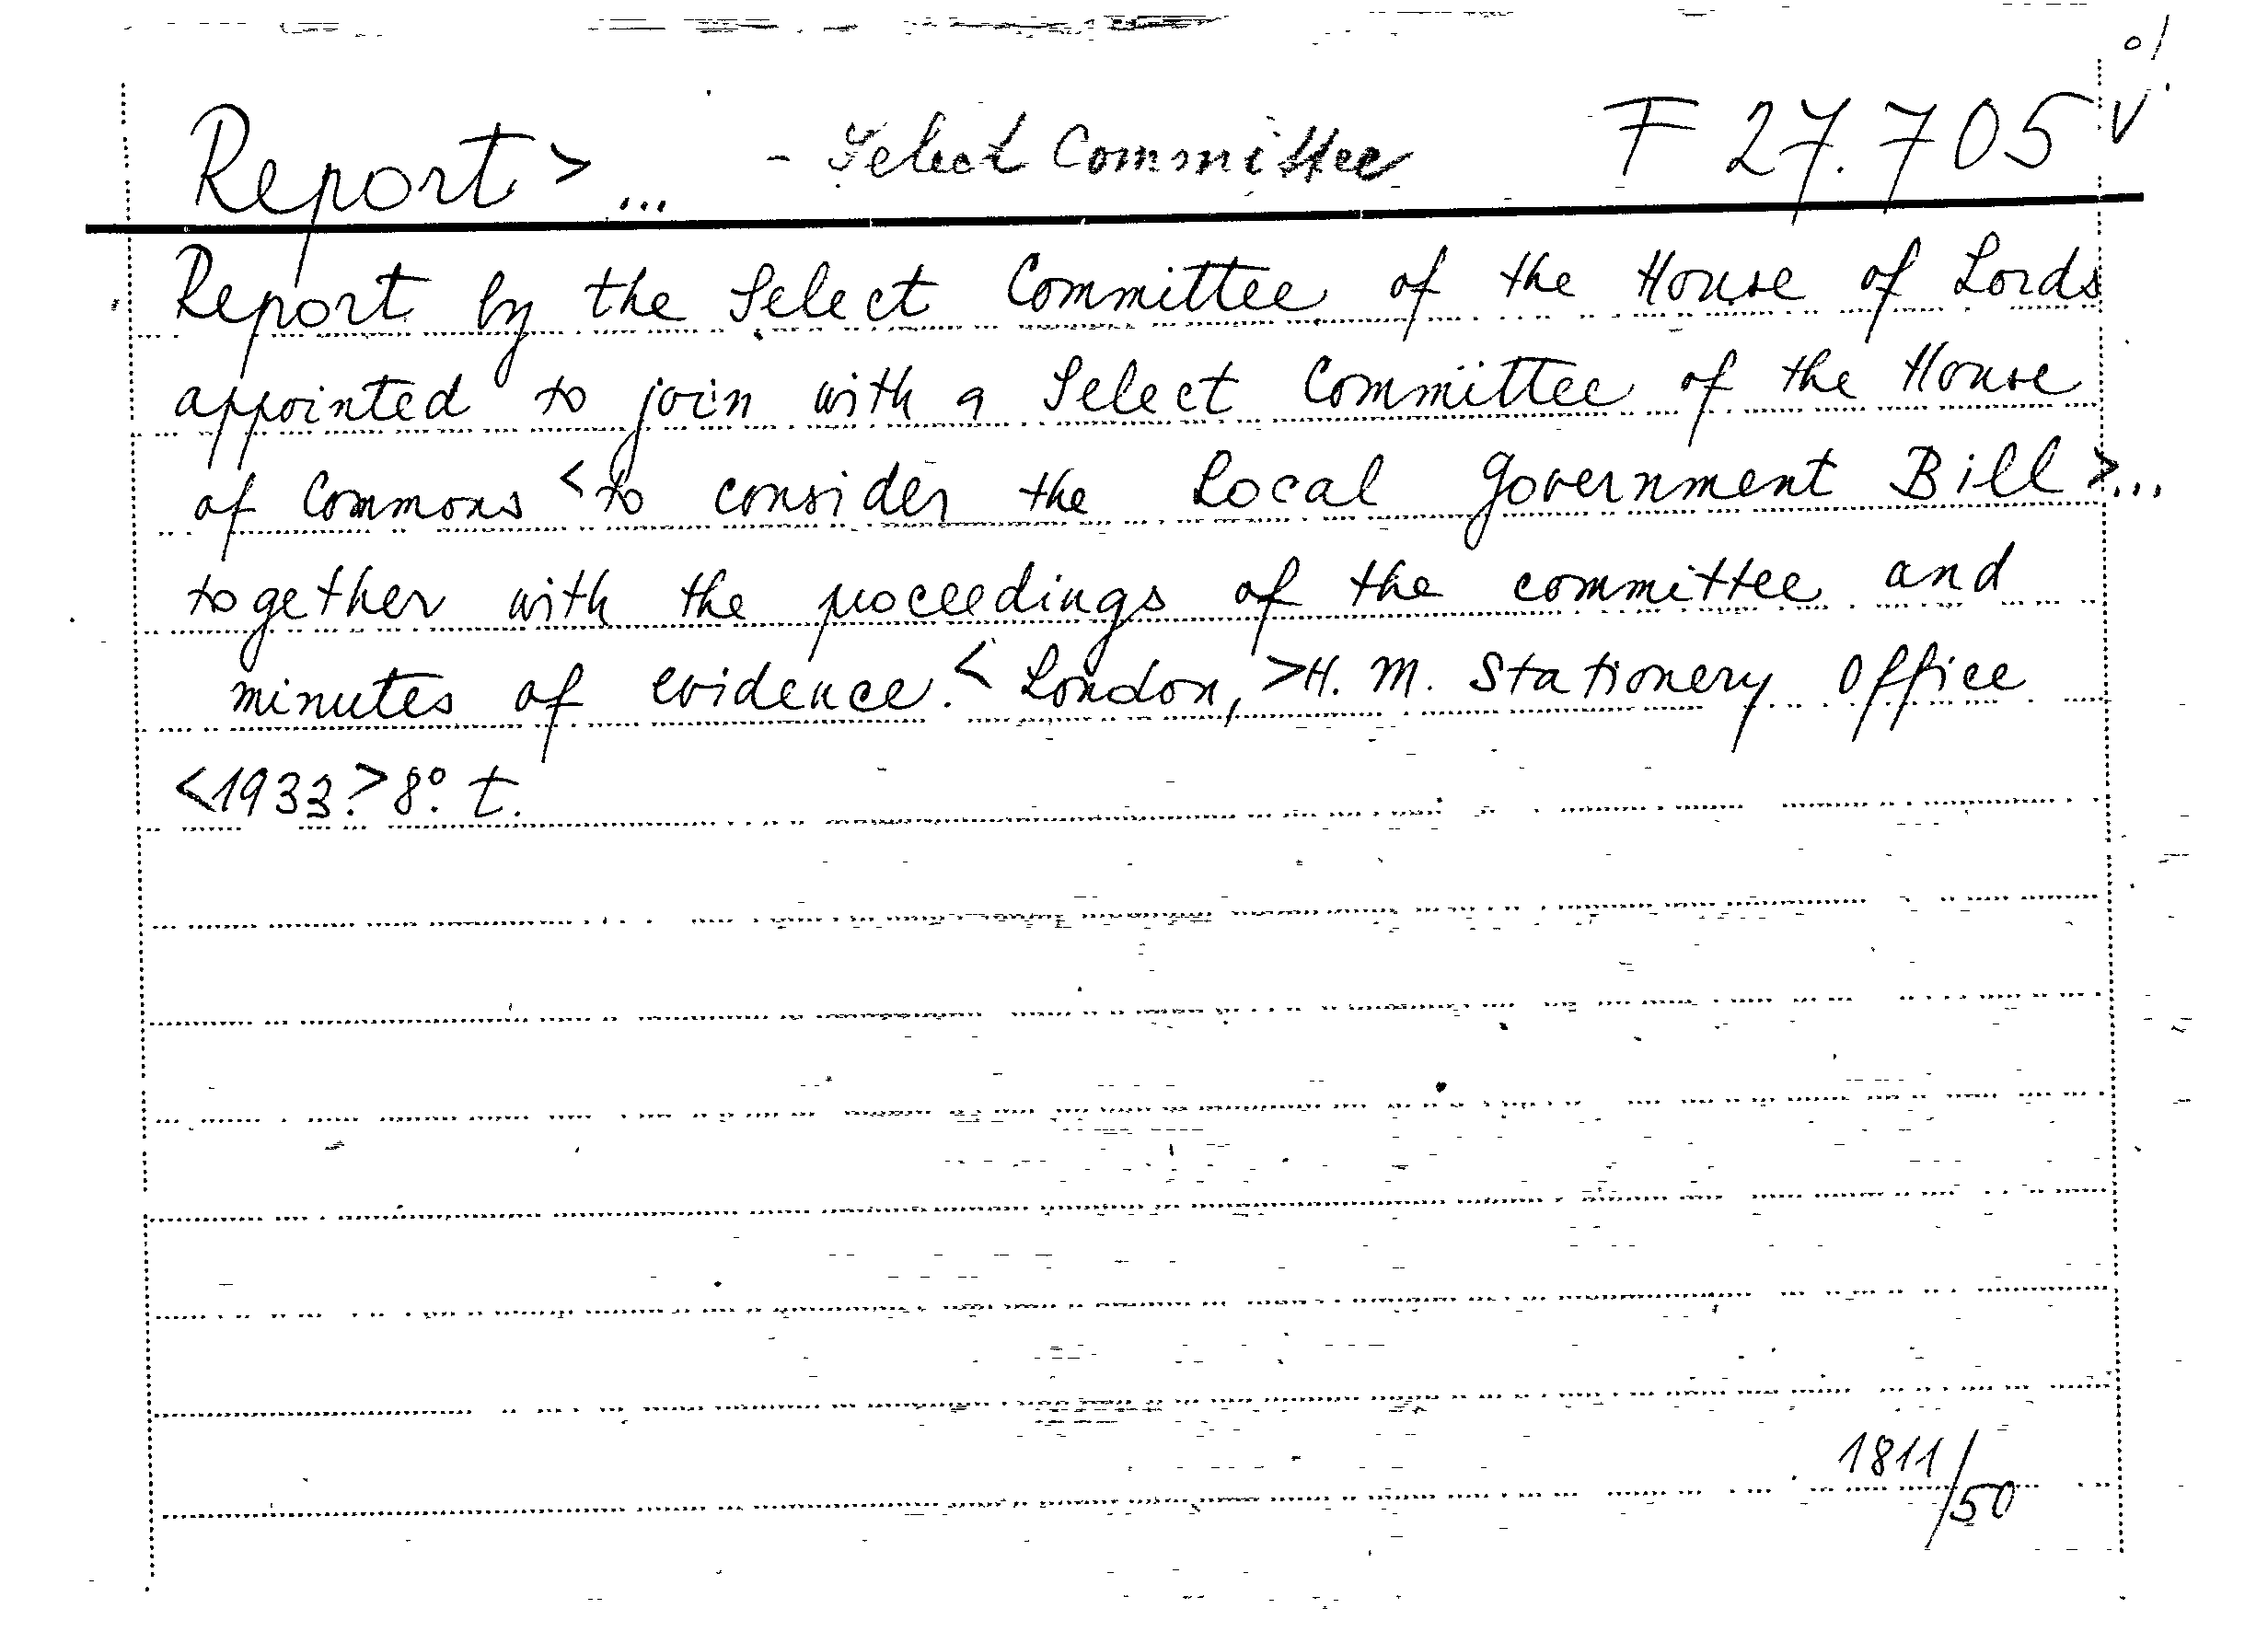 Report > ... - Select Committee F 27.705 v
Report by the Select Committee of the House of Lords
appointed to join with a Select Committee of the House
of Commons < to consider the Local Government Bill > ...
together with the proceedings of the committee and
minutes of evidence. < London, > H. M. Stationery Office
<1933?> 8° t.
1811/50